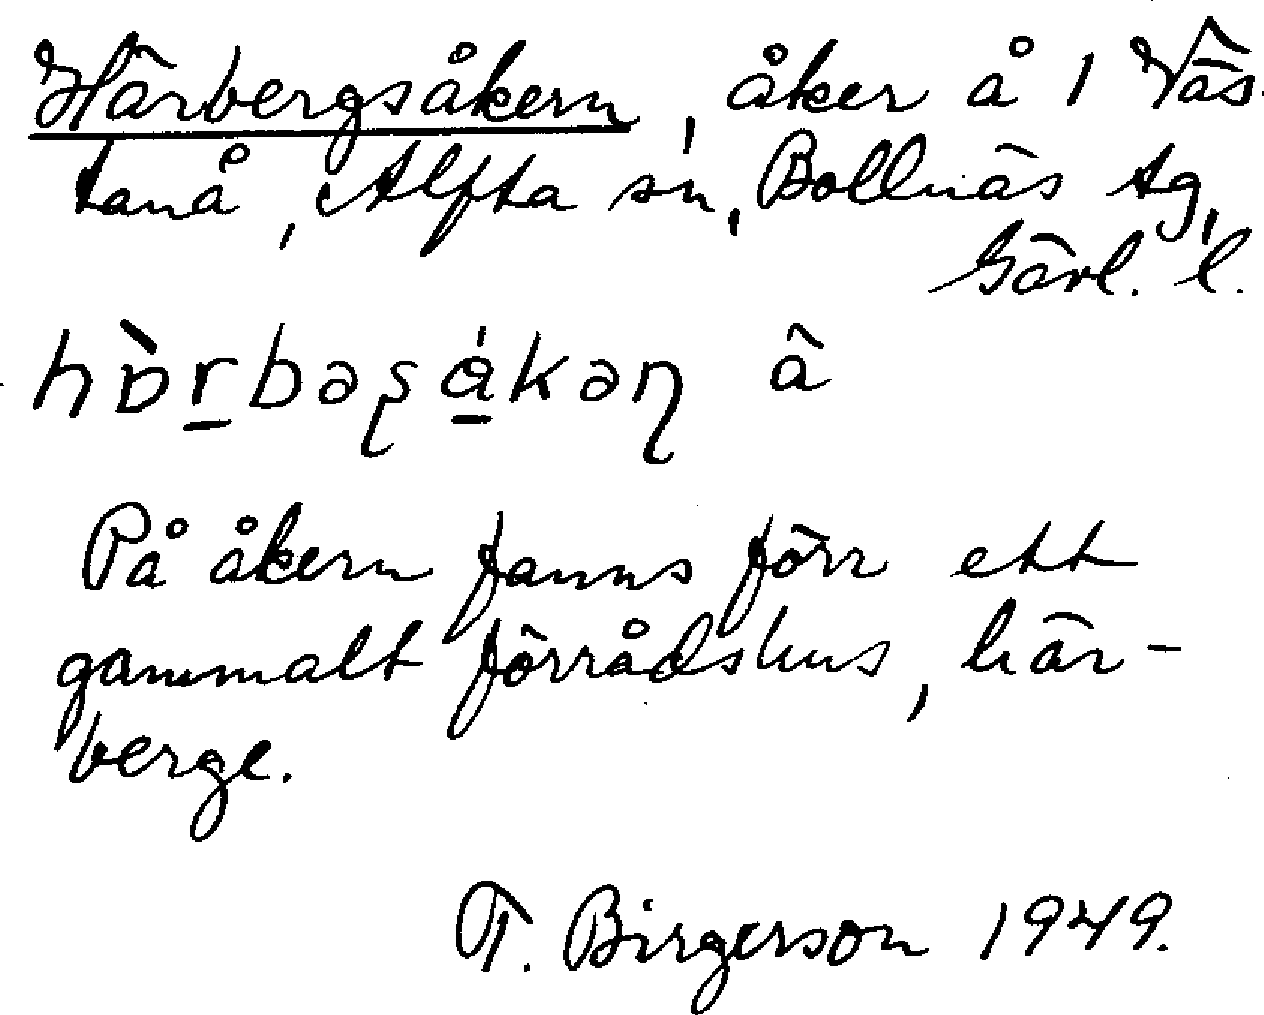 Härbergsåkern, åker å 1 Väs-
tanå, Alfta sn, Bollnäs tg,
Gävl. l.
hɒ̀rbəʂákəɳ â
På åkern fanns förr ett
gammalt förrådshus, här-
berge.
T. Birgerson 1949.